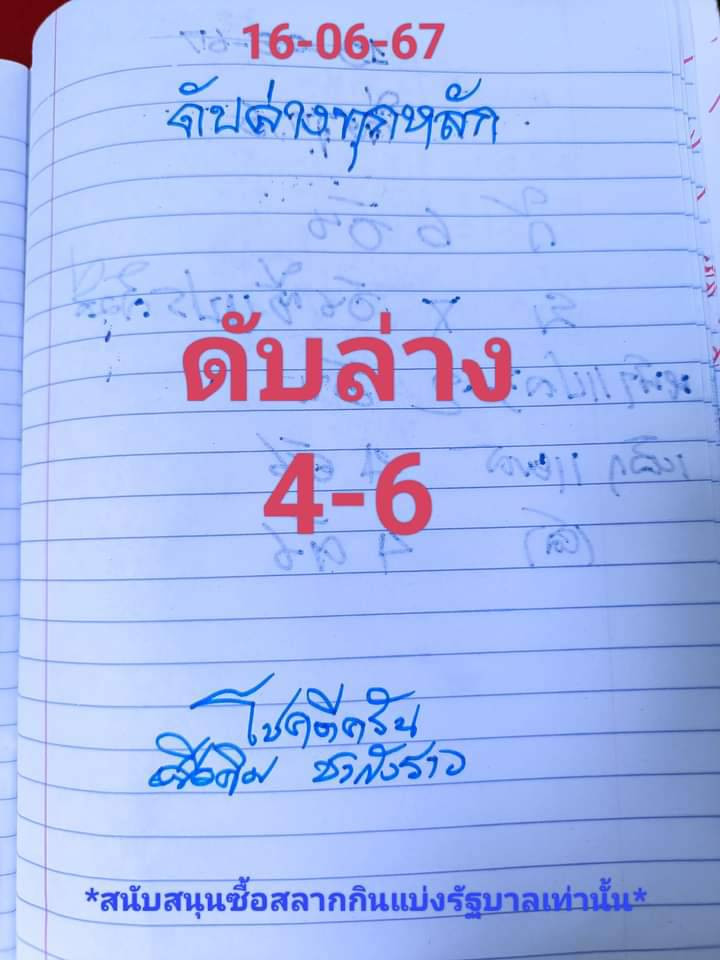 16-06-67
ดับล่างทุกหลัก
ดับล่าง
4-6
โชคดีครับ
ชากังราว
*สนับสนุนซื้อสลากกินแบ่งรัฐบาลเท่านั้น*